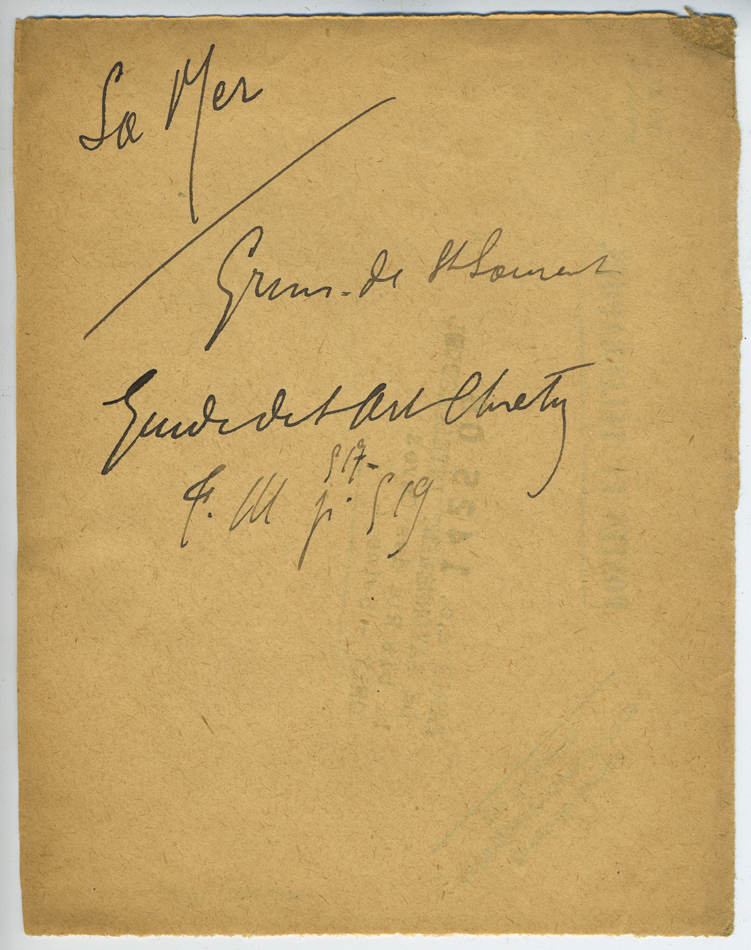 La Mer
Grim. de St Laurent
Guide de l'Art Chretn
T. III p. 519
517-